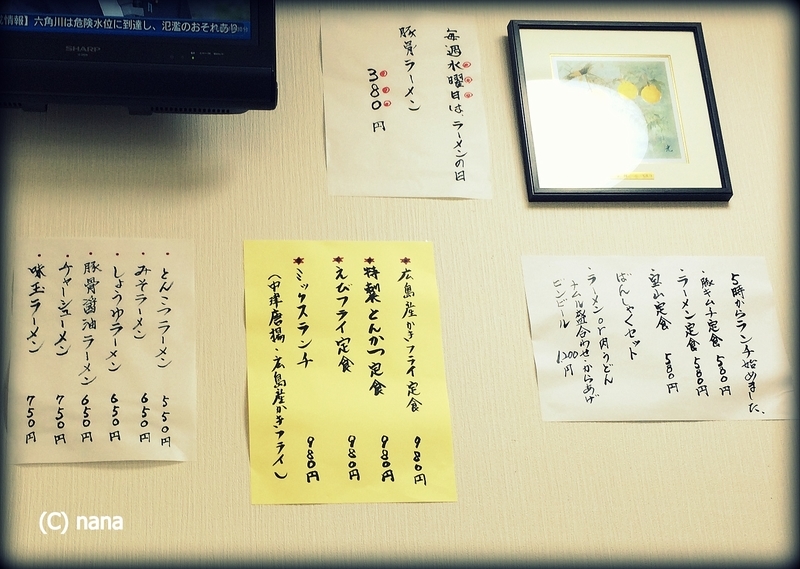 情報】六角川は危険水位に到達し、氾濫のおそれあり
SHARP
毎週水曜日は、ラーメンの日
豚骨ラーメン
380円
・とんこつラーメン 550円
・みそラーメン 650円
・しょうゆラーメン 650円
・豚骨醤油ラーメン 650円
・チャーシューメン 750円
・味玉ラーメン 750円
広島産かきフライ定食 980円
特製とんかつ定食 980円
えびフライ定食 980円
ミックスランチ 980円
(中津唐揚・広島産かきフライ)
5時からランチ始めました。
・豚キムチ定食 580円
・ラーメン定食 580円
・宝山定食 580円
ばんしゃくセット
・ラーメンor肉うどん
・ナムル盛合わせ・からあげ
ビンビール 1200円
(C) nana